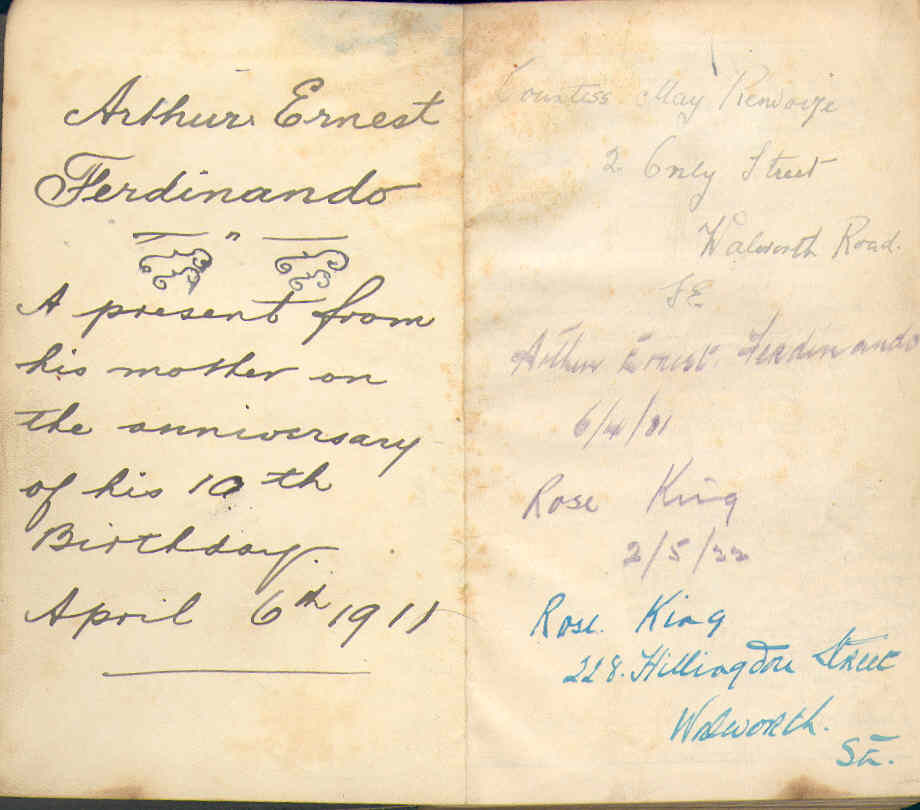 Arthur Ernest
Ferdinando
A present from
his mother on
the anniversary
of his 10th
Birthday
April 6th 1911
Countess May
2 Only Street
Walworth Road.
SE
Arthur Ernest Ferdinando
6/4/01
Rose King
2/5/22
Rose. King
228. Hillingdon Street
Walworth.
SE.